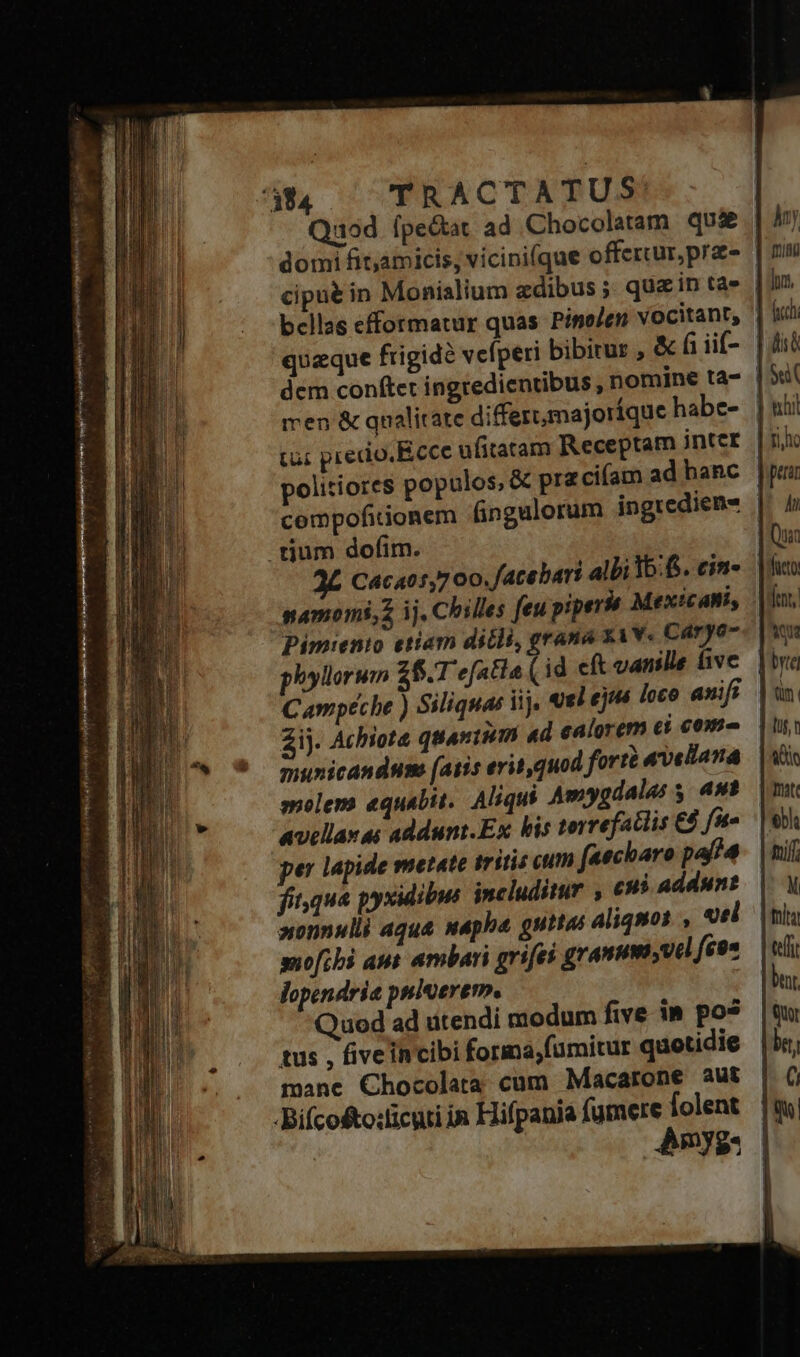 184 TRACTATUS
Quod ſpectat ad Chocolatam quæ
domi fit,amicis, viciniſque offertur,præ-
cipuè in Monialium ædibus; quæ in ta-
bellas efformatur quas Pinolen vocitant,
quæque frigidè veſperi bibitur, & ſi iiſ-
dem conſtet ingredientibus, nomine ta-
men & qualitate differt,majoríque habe-
tur pretio.Ecce uſitatam Receptam inter
politiores populos, & præciſam ad hanc
compoſitionem ſingulorum ingredien-
tium doſim.
♃ Cacaos,700. ſacchari albi ℔ ß. cin-
namomi,℥ ij. Chilles ſeu piperis Mexicani,
Pimiento etiam dicti, grana XIV. Caryo-
phyllorum ℥ß.Tefacta (id eſt vanille ſive
Campéche) Siliquas iij. vel ejus loco aniſi
℥ij. Achiote quantùm ad calorem ei com-
municandum ſatis erit,quod fortè avellana
molem æquabit. Aliqui Amygdalas; aut
avellanas addunt.Ex his torrefactis & ſu-
per lapide metate tritis cum ſaccharo paſta
fit,quæ pyxidibus includitur, cui addunt
nonnulli aquæ naphæ guttas aliquot, vel
moſchi aut ambari griſei granum,vel ſco-
lopendriæ pulverem.
Quod ad utendi modum ſive in po-
tus, ſive in cibi forma,ſumitur quotidie
mane Chocolata cum Macarone aut
Biſcocto:ſicuti in Hiſpania ſumere ſolent
Amyg-